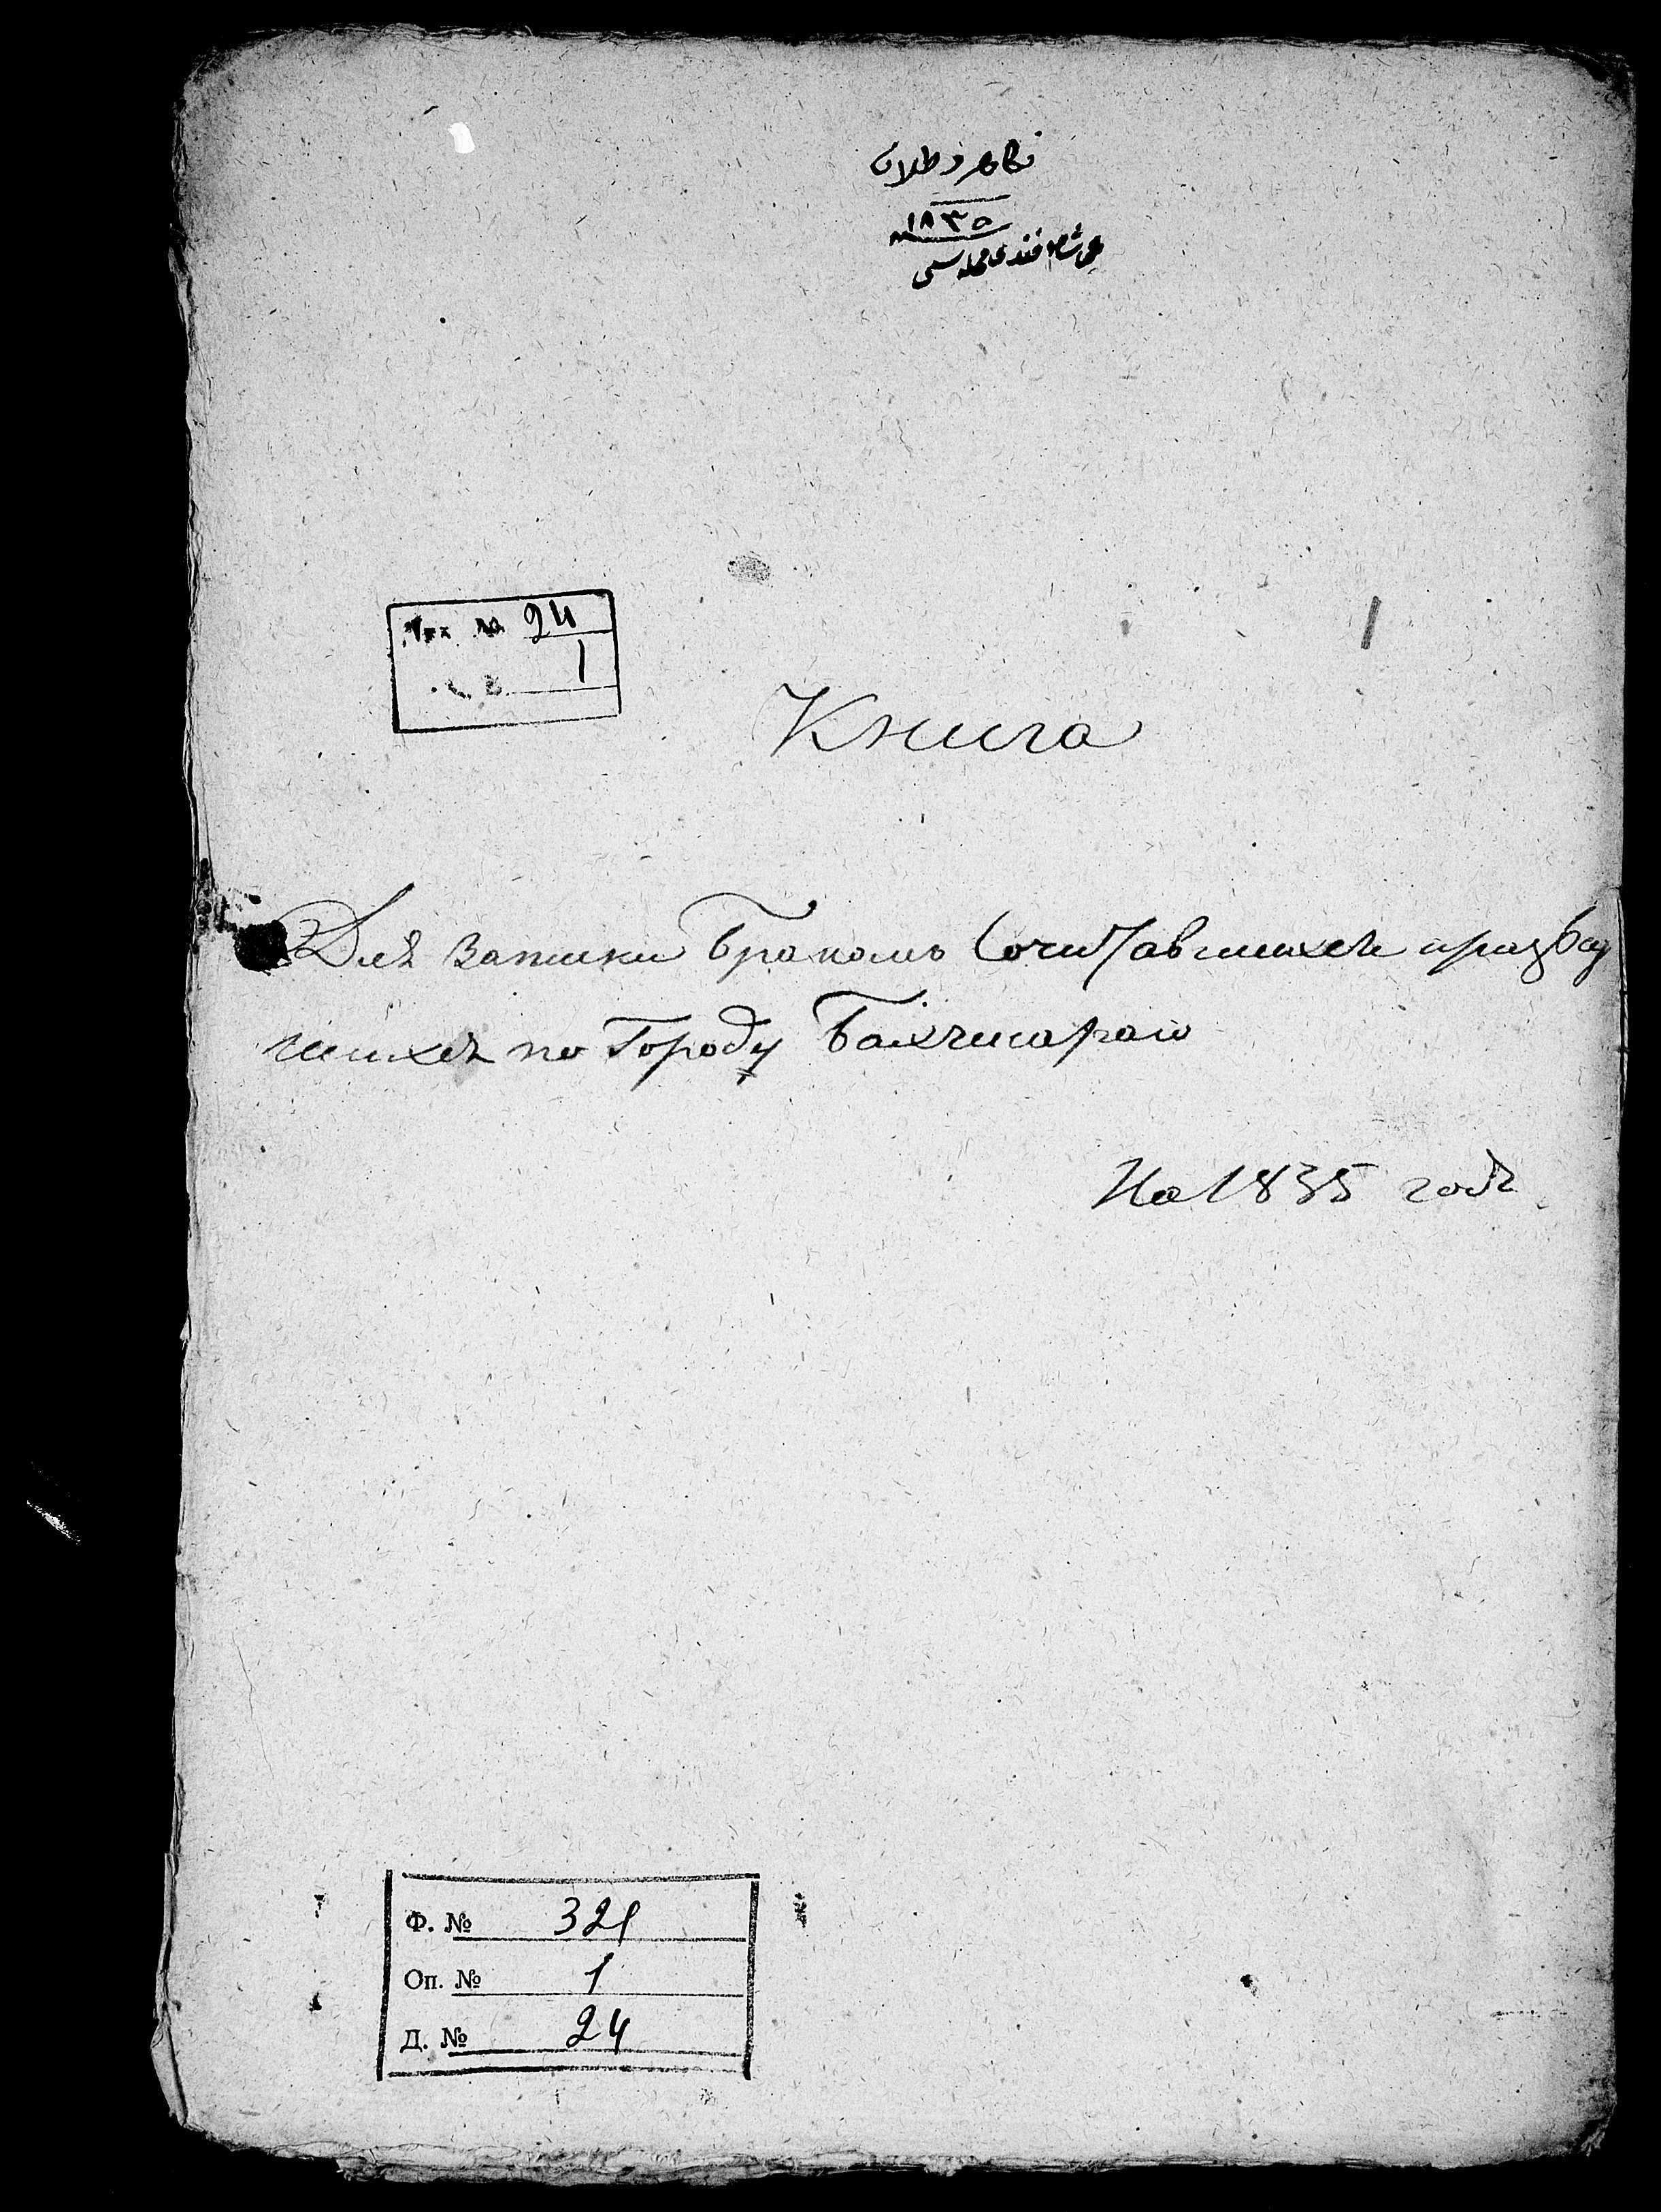 نكاح و طلاق
١٨٣٥
افندی محله سی
№ 24
1
1
Книга
Для записки бракомъ сочитавшихся и развед
шихся по Городу Бахчисараю
На 1835 годъ
Ф. № 321
Оп. № 1
Д. № 24